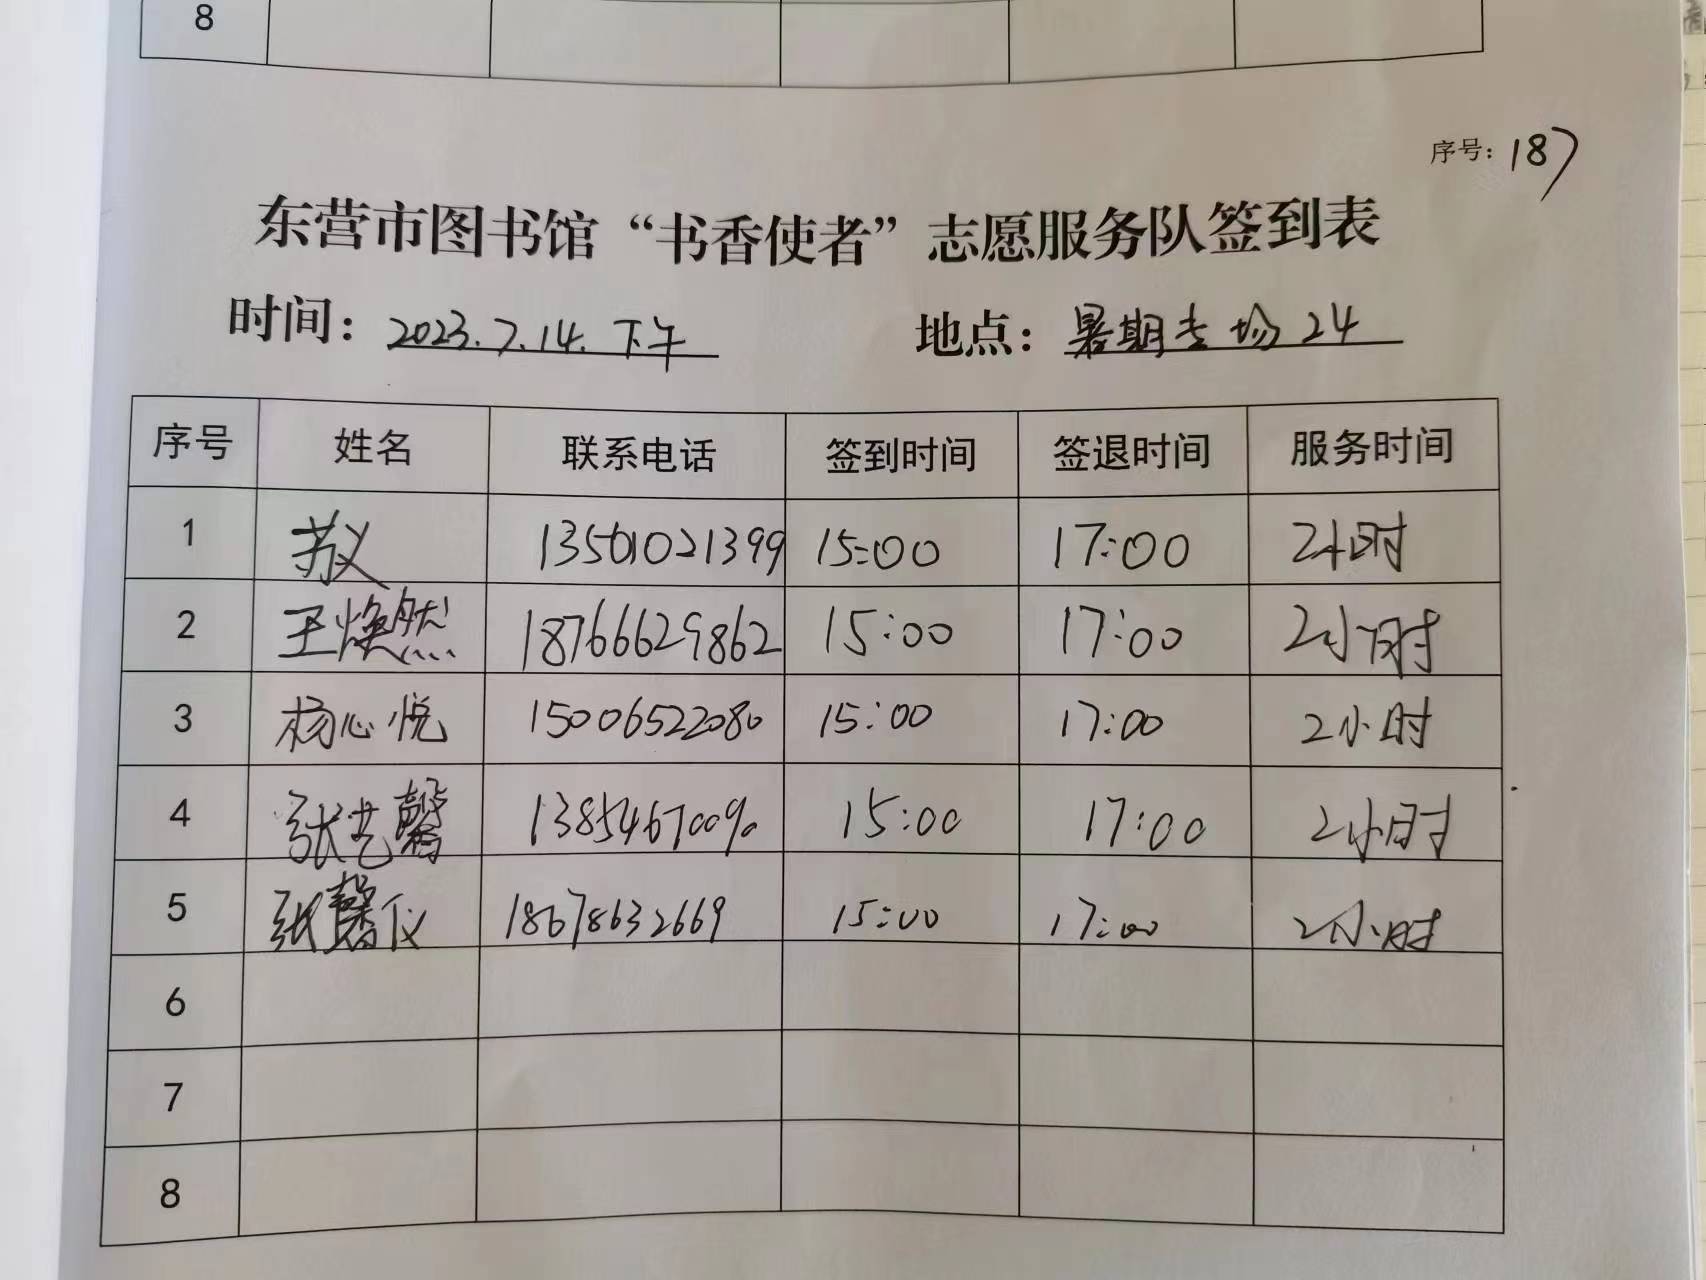 8
序号：187
东营市图书馆“书香使者”志愿服务队签到表
时间：2023.7.14.下午 地点：暑期专场24
序号 姓名 联系电话 签到时间 签退时间 服务时间
1 苏义 13561021399 15:00 17:00 2小时
2 王焕然 18766629862 15:00 17:00 2小时
3 杨心悦 15006522080 15:00 17:00 2小时
4 张艺馨 15:00 17:00 2小时
5 张馨仪 18678632669 15:00 17:00 2小时
6
7
8